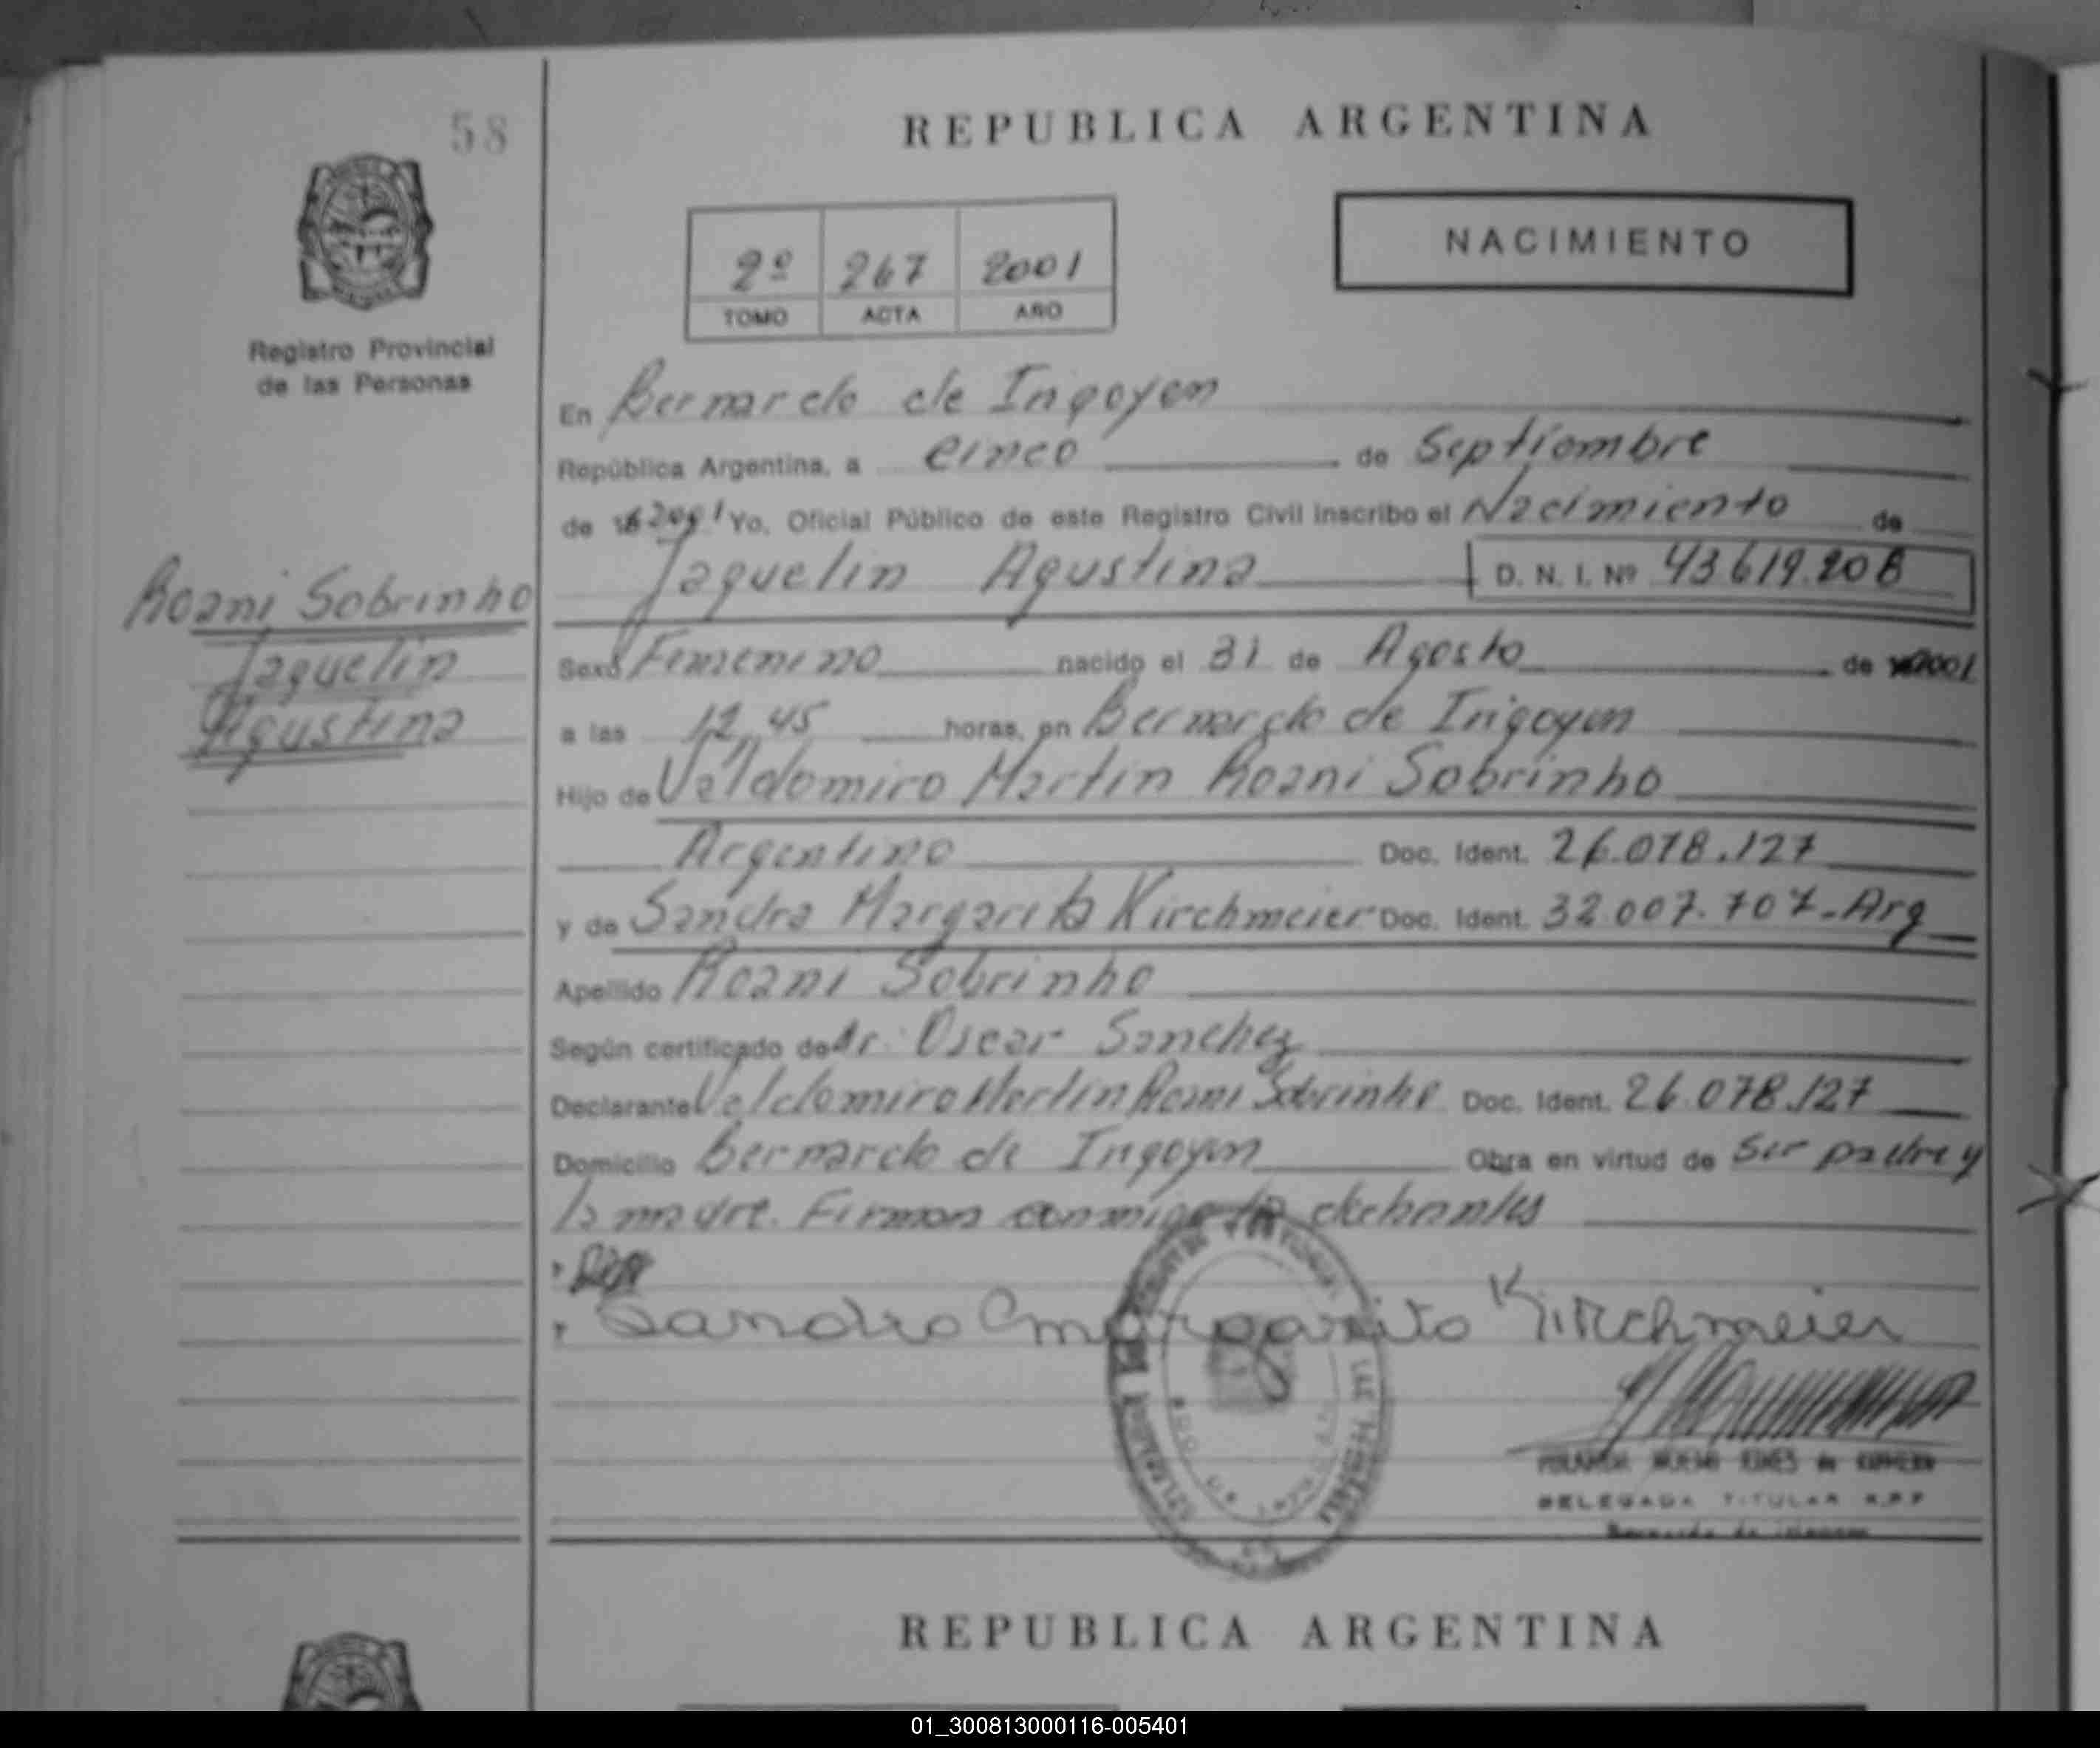 58
REPUBLICA ARGENTINA
NACIMIENTO
2º 267 2001
TOMO ACTA AÑO
Registro Provincial
de las Personas
En Bernardo de Irigoyen
República Argentina, a cinco de Septiembre
de 2001 Yo, Oficial Público de este Registro Civil inscribo el Nacimiento de
Jaquelin Agustina D. N. I. Nº 43.619.208
Roani Sobrinho
Jaquelin
Agustina
Sexo Femenino nacido el 31 de Agosto de 2001
a las 12,45 horas, en Bernardo de Irigoyen
Hijo de Valdomiro Martin Roani Sobrinho
Argentino Doc. Ident. 26.078.127
y de Sandra Margarita Kirchmeier Doc. Ident. 32.007.707-Arg
Apellido Roani Sobrinho
Según certificado de dr. Oscar Sanchez
Declarante Valdomiro Martin Roani Sobrinho Doc. Ident. 26.078.127
Domicilio Bernardo de Irigoyen Obra en virtud de ser padre y
la madre. Firman conmigo
Sandra Margarita Kirchmeier
DELEGADA TITULAR R.P.P
Bernardo de Irigoyen
REPUBLICA ARGENTINA
01_300813000116-005401